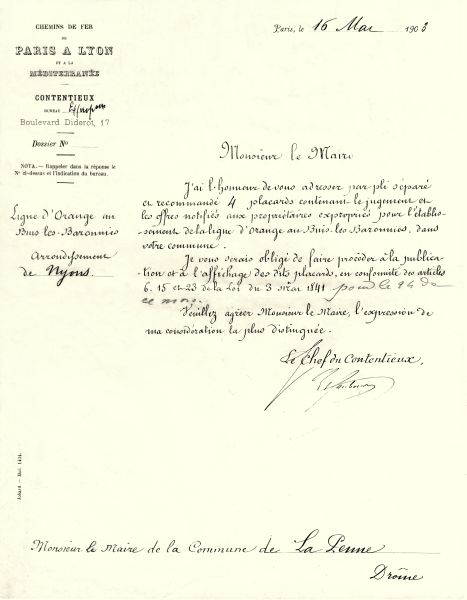 CHEMINS DE FER
DE
PARIS A LYON
ET A LA
MÉDITERRANÉE
CONTENTIEUX
BUREAU
Boulevard Diderot, 17
Dossier No
NOTA. — Rappeler dans la réponse le
No ci-dessus et l'indication du bureau.
Ligne d'Orange au
Buis-les-Baronnies
Arrondissement
de Nyons.
Paris, le 16 Mai 1903
Monsieur le Maire
J'ai l'honneur de vous adresser par pli séparé
et recommandé 4 placards contenant le jugement et
les offres notifiés aux propriétaires expropriés pour l'établis-
sement de la ligne d'Orange au Buis-les-Baronnies, dans
votre commune.
Je vous serais obligé de faire procéder à la publica-
tion et à l'affichage des dits placards, en conformité des articles
6. 15 et 23 de la Loi du 3 mai 1841 pour le 24 de
ce mois.
Veuillez agréer Monsieur le Maire, l'expression de
ma considération la plus distinguée.
Le Chef du Contentieux,
Monsieur le Maire de la Commune de La Penne
Drôme